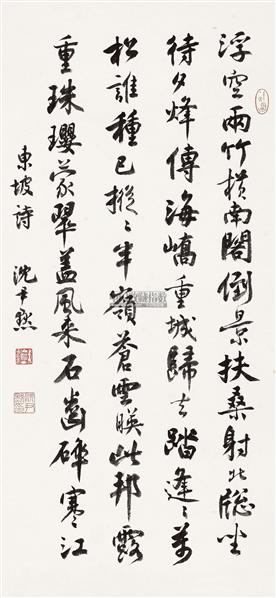 浮空兩竹横南閣倒景扶桑射北牕坐
待夕烽傳海嶠重城歸去踏逢〻萬
松誰種已摐〻半嶺蒼雲暎此邦露
重珠瓔蒙翠蓋風来石齒碎寒江
東坡詩 沈尹默